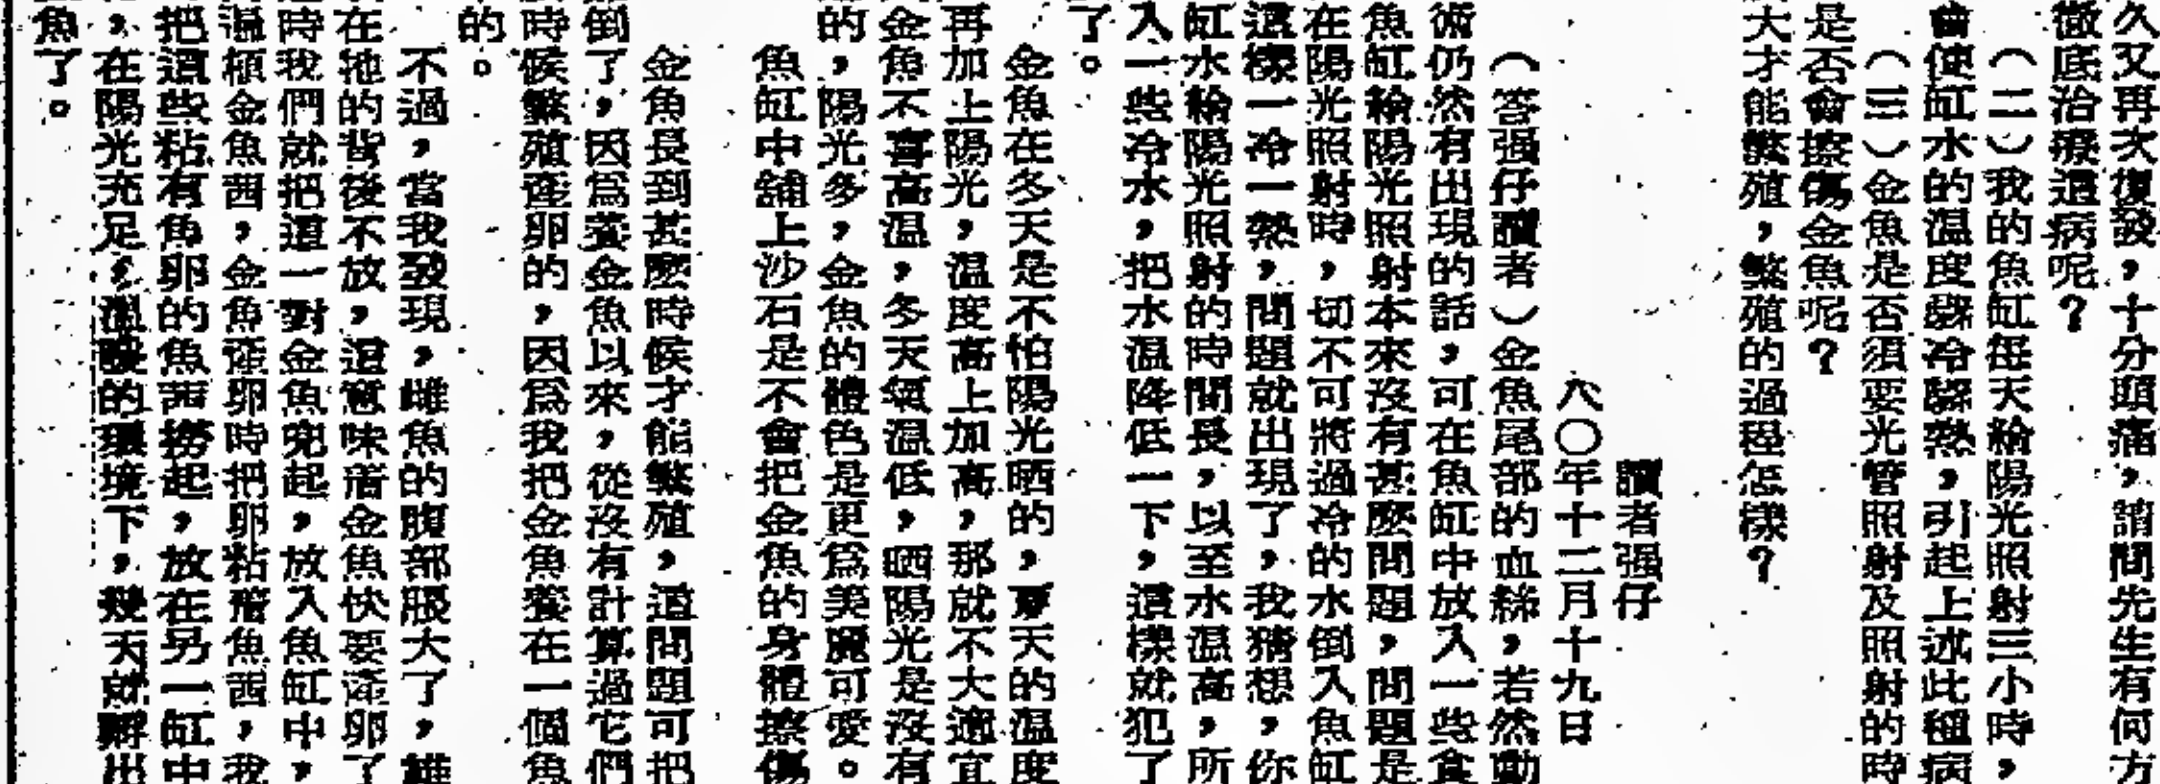 久又再次復發，十分頭痛，請問先生有何方
徹底治療這病呢？
（二）我的魚缸每天給陽光照射三小時，
會使缸水的溫度驟冷驟熱，引起上述此種病
（三）金魚是否須要光管照射及照射的時
是否會擦傷金魚呢？
大才能繁殖，繁殖的過程怎樣？
讀者强仔
六〇年十二月十九日
（答强仔讀者）金魚尾部的血絲，若然動
術仍然有出現的話，可在魚缸中放入一些食
魚缸給陽光照射本來沒有甚麼問題，問題是
在陽光照射時，切不可將過冷的水倒入魚缸
這樣一冷一熱，問題就出現了，我猜想，你
缸水給陽光照射的時間長，以至水溫高，所
入一些冷水，把水溫降低一下，這樣就犯了
了。
金魚在冬天是不怕陽光晒的，夏天的溫度
再加上陽光，溫度高上加高，那就不大適宜
金魚不喜高溫，冬天氣溫低，晒陽光是沒有
的，陽光多，金魚的體色是更爲美麗可愛。
魚缸中舖上沙石是不會把金魚的身體擦傷
金魚長到甚麼時候才能繁殖，這問題可把
倒了，因爲養金魚以來，從沒有計算過它們
時候繁殖產卵的，因爲我把金魚養在一個魚
的。
不過，當我發現，雌魚的腹部脹大了，雄
在牠的背後不放，這意味着金魚快要產卵了
時我們就把這一對金魚兜起，放入魚缸中，
溫植金魚茜，金魚產卵時把卵粘着魚茜，我
把這些粘有魚卵的魚茜撈起，放在另一缸中
，在陽光充足，溫暖的環境下，幾天就孵出
魚了。